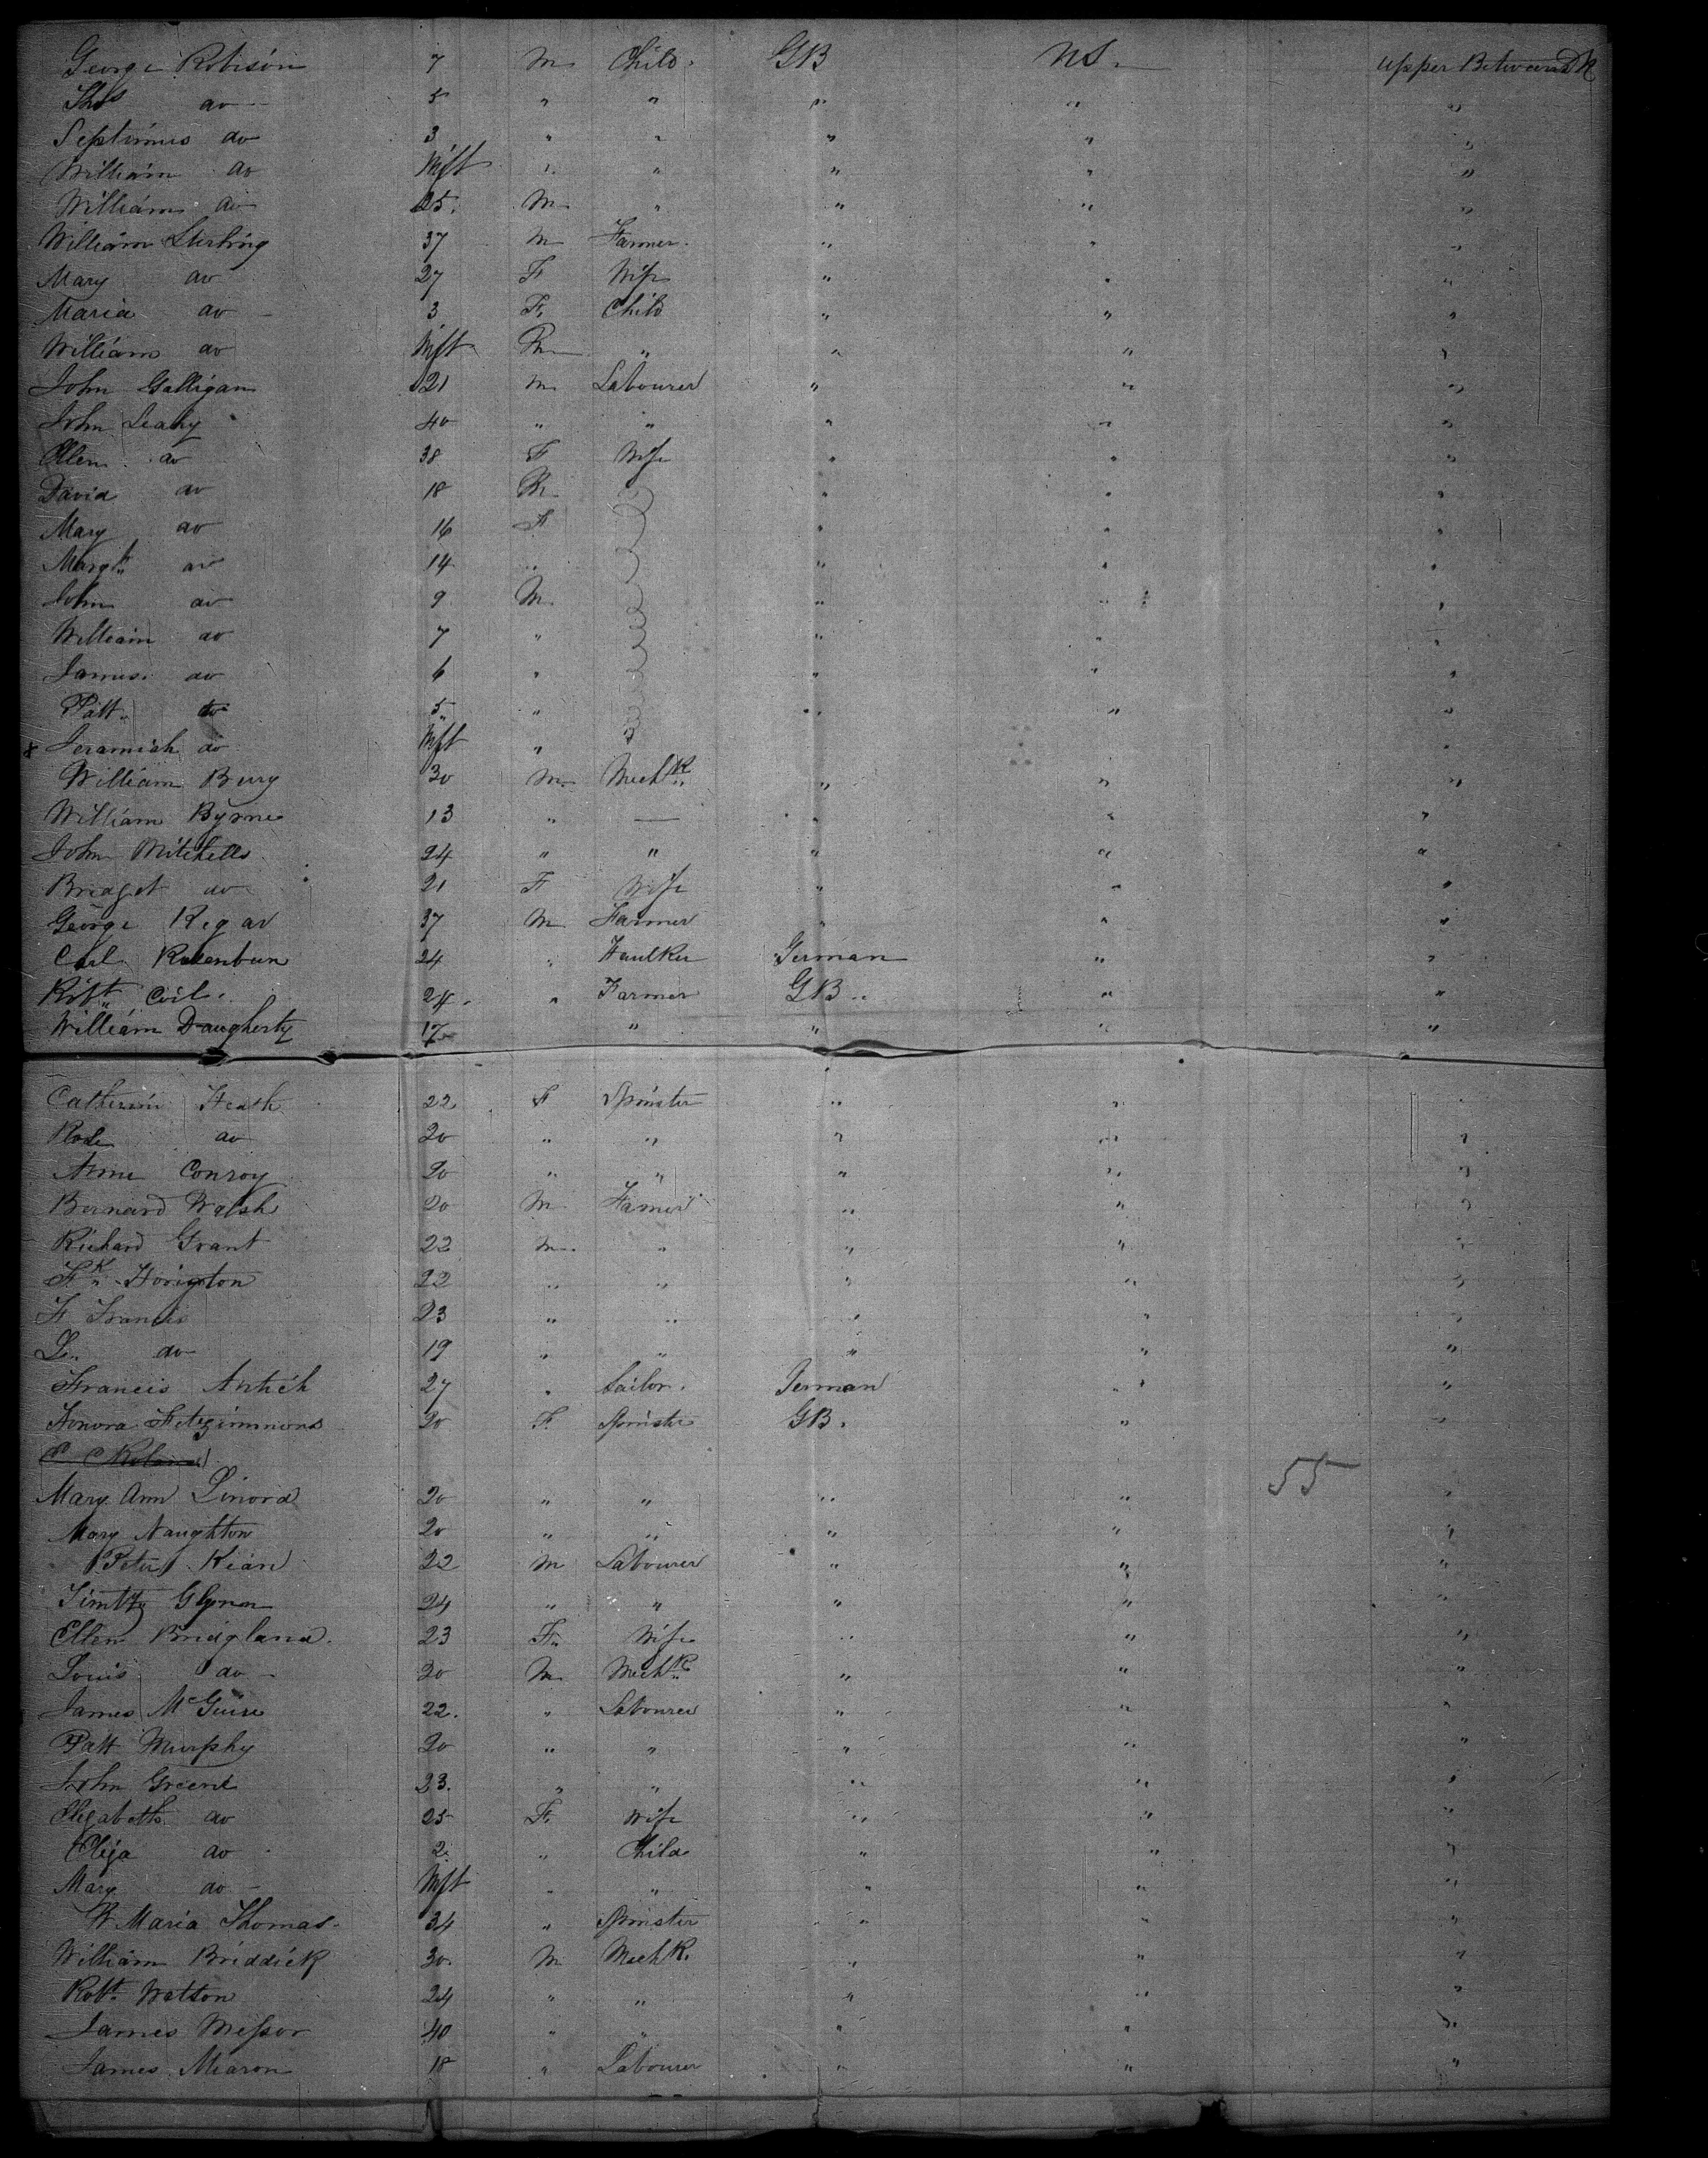 George Robison 7 M Child. GB US. Upper Between Dk
Thos do 5 " " " " "
Septimus do 3 " " " " "
William do Inft " " " " "
William do 25. M " " " "
William Sterling 37 M Farmer. " " "
Mary do 27 F Wife " " "
Maria do 3 F. Child " " "
William do Inft M " " " "
John Galligan 21 M Labourer " " "
John Leahy 40 " " " " "
Ellen do 38 F Wife " " "
David do 18 M " " "
Mary do 16 F " " "
Margt do 14 " " " "
John do 9 M " " "
William do 7 " " " "
James do 6 " " " "
Patt do 5 " " " "
Jeramiah do Inft " " " "
William Burg 30 M Mechk " " "
William Byrne 13 " — " " "
John Mitchells 24 " " " " "
Bridget do 21 F Wife " " "
George Regar 37 M Farmer " " "
Carl 24 " German " "
Robt Coil. 24. " Farmer GB " "
William Daugherty 17 " " " "
Catherin Heath 22 F Spinster " " "
do 20 " " " " "
Anne Conroy 20 " " " " "
Bernard Walsh 20 M Farmer " " "
Richard Grant 22 M " " " "
Fk 22 " " " " "
F Francis 23 " " " " "
L. do 19 " " " " "
Francis 27 " German " "
Honora Fitzgimmons 20 F. Spinster GB. " "
55
Mary Ann Linord 20 " " " " "
Mary Naughton 20 " " " " "
Peter Kian 22 M Labourer " " "
Timty Glynn 24 " " " " "
Ellen Bridgland. 23 F. Wife " " "
Louis do 20 M Mechk " " "
James McGuire 22. " Labourer " " "
Patt Murphy 20 " " " " "
John Greene 23. " " " " "
Elizabeth do 25 F. Wife " " "
Eliza do 2 " Child " " "
Mary do Inft " " " " "
W Maria Thomas 34 " Spinster " " "
William Briddick 30. M Mechk. " " "
Robt Watson 24 " " " " "
James Messor 40 " " " " "
James Mearon 18 " Labourer " " "